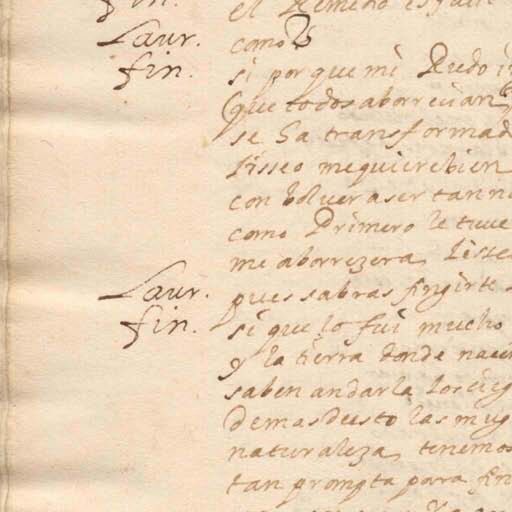 fin.
el Remedio es facil
Laur. como
fin. si por que mi Rudo i
que todos aborrecian
se ha transformad
Lisseo me quiere bien
con bolver a ser tan n
como Primero le tuve
me aborrezera Lisse
Laur. pues sabras fingirte
fin. si que lo fui mucho
y la tierra donde naci
saben andarla los cieg
demas desto las mug
naturaleza tenemos
tan prompta para fin